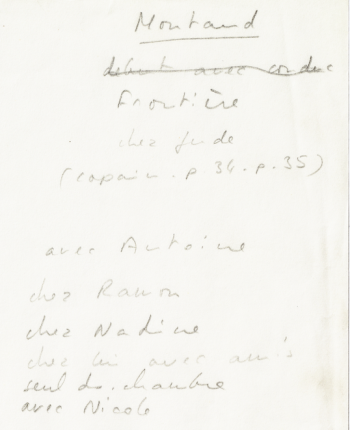 Montand
début avec conduc
Frontière
chez Jude
(copain. p 34. p. 35)
avec Antoine
chez Ramon
chez Nadine
chez lui avec amis
seul ds. chambre
avec Nicole